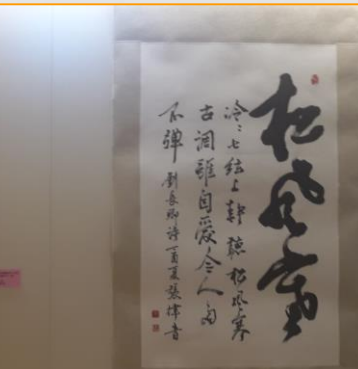 松風寒
泠:七絃上靜聽松風寒
古調雖自愛今人多
不彈 劉長卿詩丁酉夏張